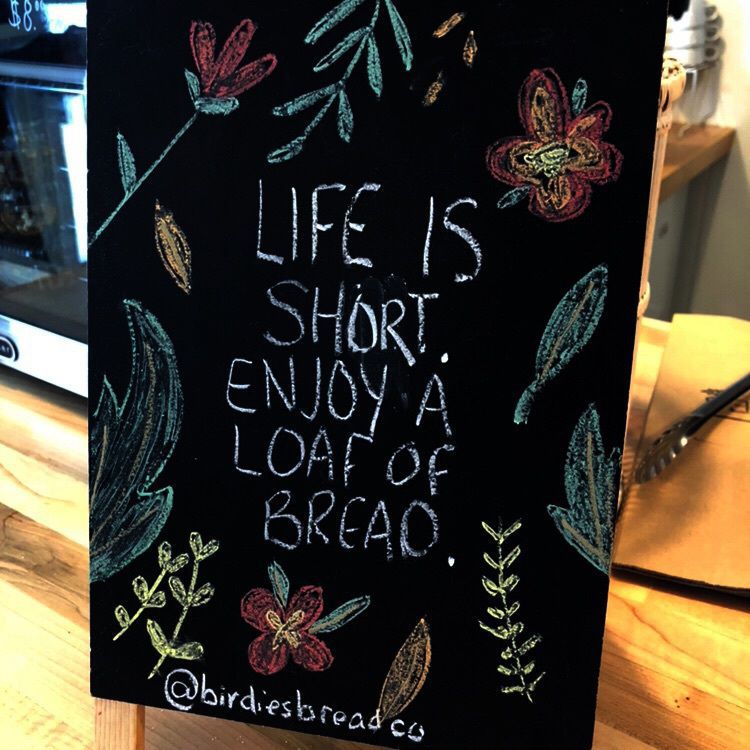 $8.
LIFE IS
SHORT.
ENJOY A
LOAF OF
BREAD.
@birdiesbreadco